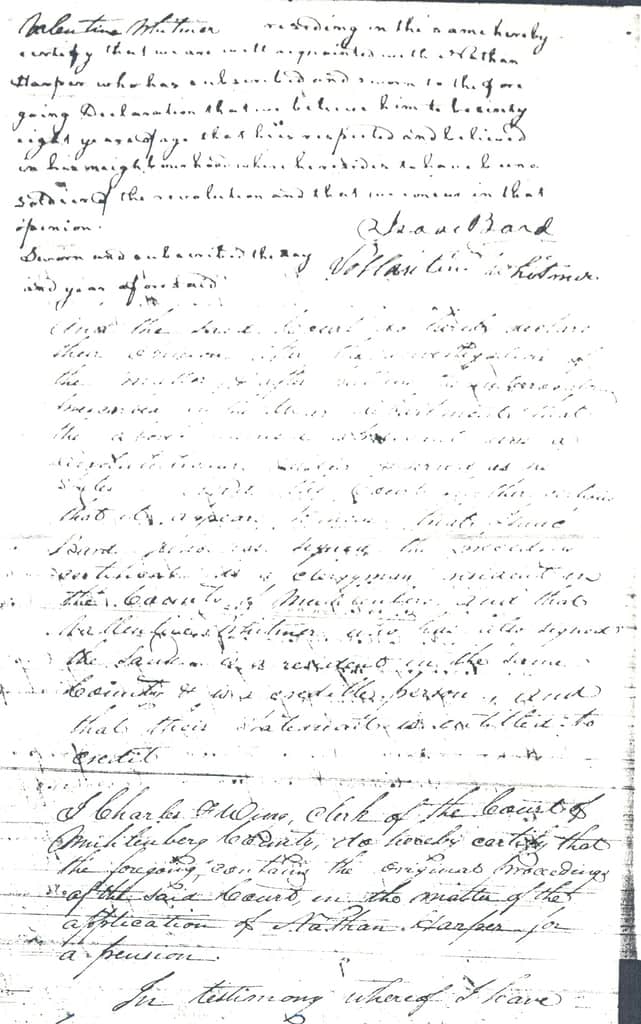 Valentine Whitmer residing in the same hereby
certify that we are well acquainted with Nathan
Harper who has subscribed and sworn to the fore
going Declaration that we believe him to be sixty
eight years of age that he is respected and believed
in his neighbourhood where he resides to have been a
soldier of the revolution and that we concur in that
opinion.
Isaac Bard
Sworn and subscribed the day
Vallentine Whitmer
and year aforesaid
And the said Court do hereby declare
their opinion after the investigation of
the matter & after the interrogatories
in the War department that
the above
revolutionary and served as he
the Court further
that it appears to them that Isaac
Bard who has signed the preceding
certificate is a clergyman resident in
the County of Muhlenberg and that
Vallentine Whitmer who has also signed
the same is a resident in the same
County & is a credible person, and
that their statement is entitled to
credit
I Charles F Wing, clerk of the Court of
Muhlenberg County, do hereby certify that
the foregoing contains the original proceedings
of the said Court in the matter of the
application of Nathan Harper for
a pension.
In testimony whereof I have